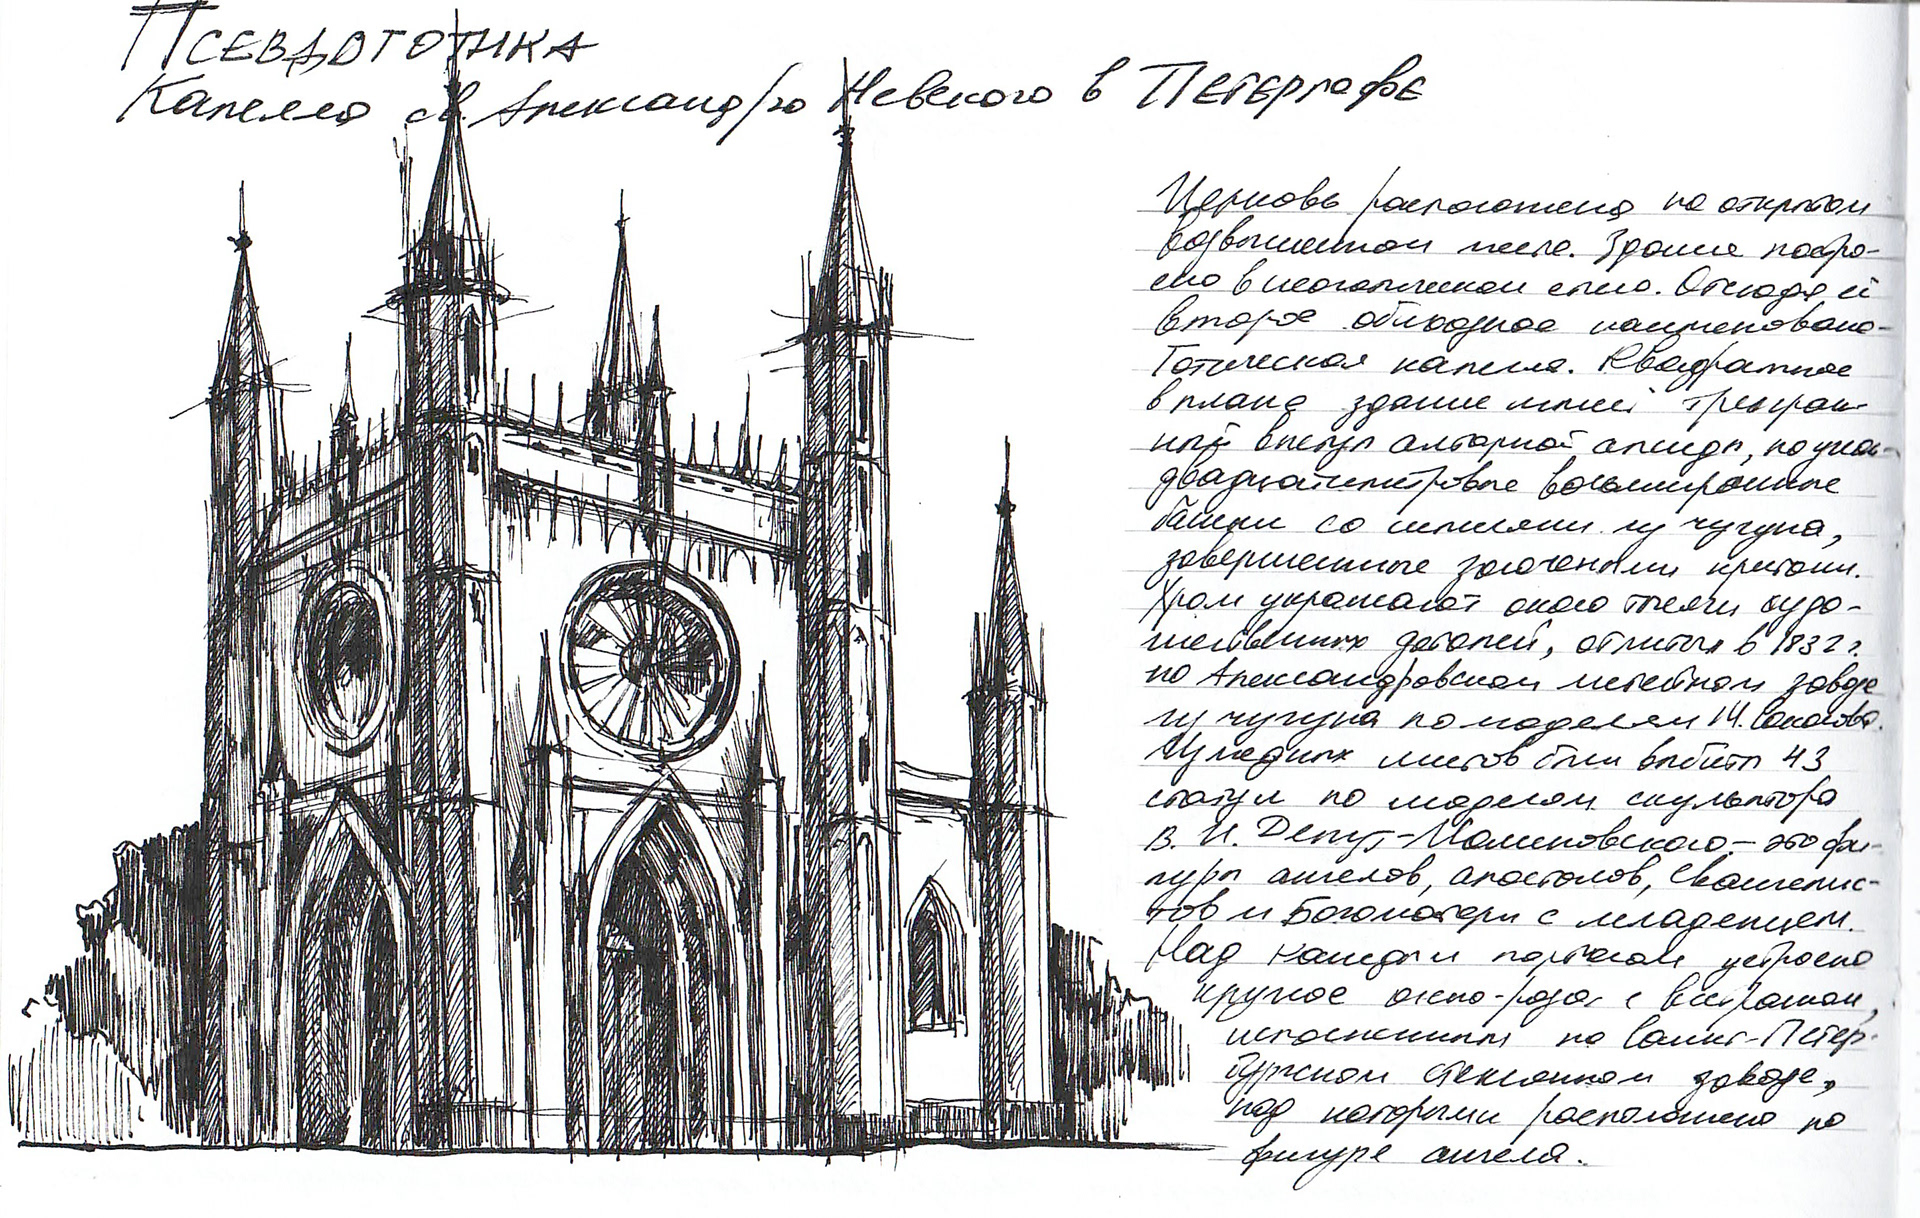 Псевдоготика
Капелла св. Александра Невского в Петергофе
Церковь расположена на открытом
возвышенном месте. Здание постро-
ено в неоготическом стиле. Отсюда и
второе обиходное наименовано-
Готическая капелла. Квадратное
в плане здание имеет трехгран-
ный выступ алтарной апсиды, по углам-
двадцатиметровые восьмигранные
башни со шпилями из чугуна,
завершенные золочеными крестами.
Храм украшают около тысячи худо-
жественных деталей, отлитых в 1832 г.
на Александровском литейном заводе
из чугуна по моделям М. Соколова.
Из медных листов были выбиты 43
статуи по моделям скульптора
В. И. Демут-Малиновского – это фи-
гуры ангелов, апостолов, евангелис-
тов и Богоматери с младенцем.
Над каждым порталом устроено
круглое окно-роза с витражом,
исполненным на Санкт-Петер-
бургском стеклянном заводе,
над которыми расположено по
фигуре ангела.